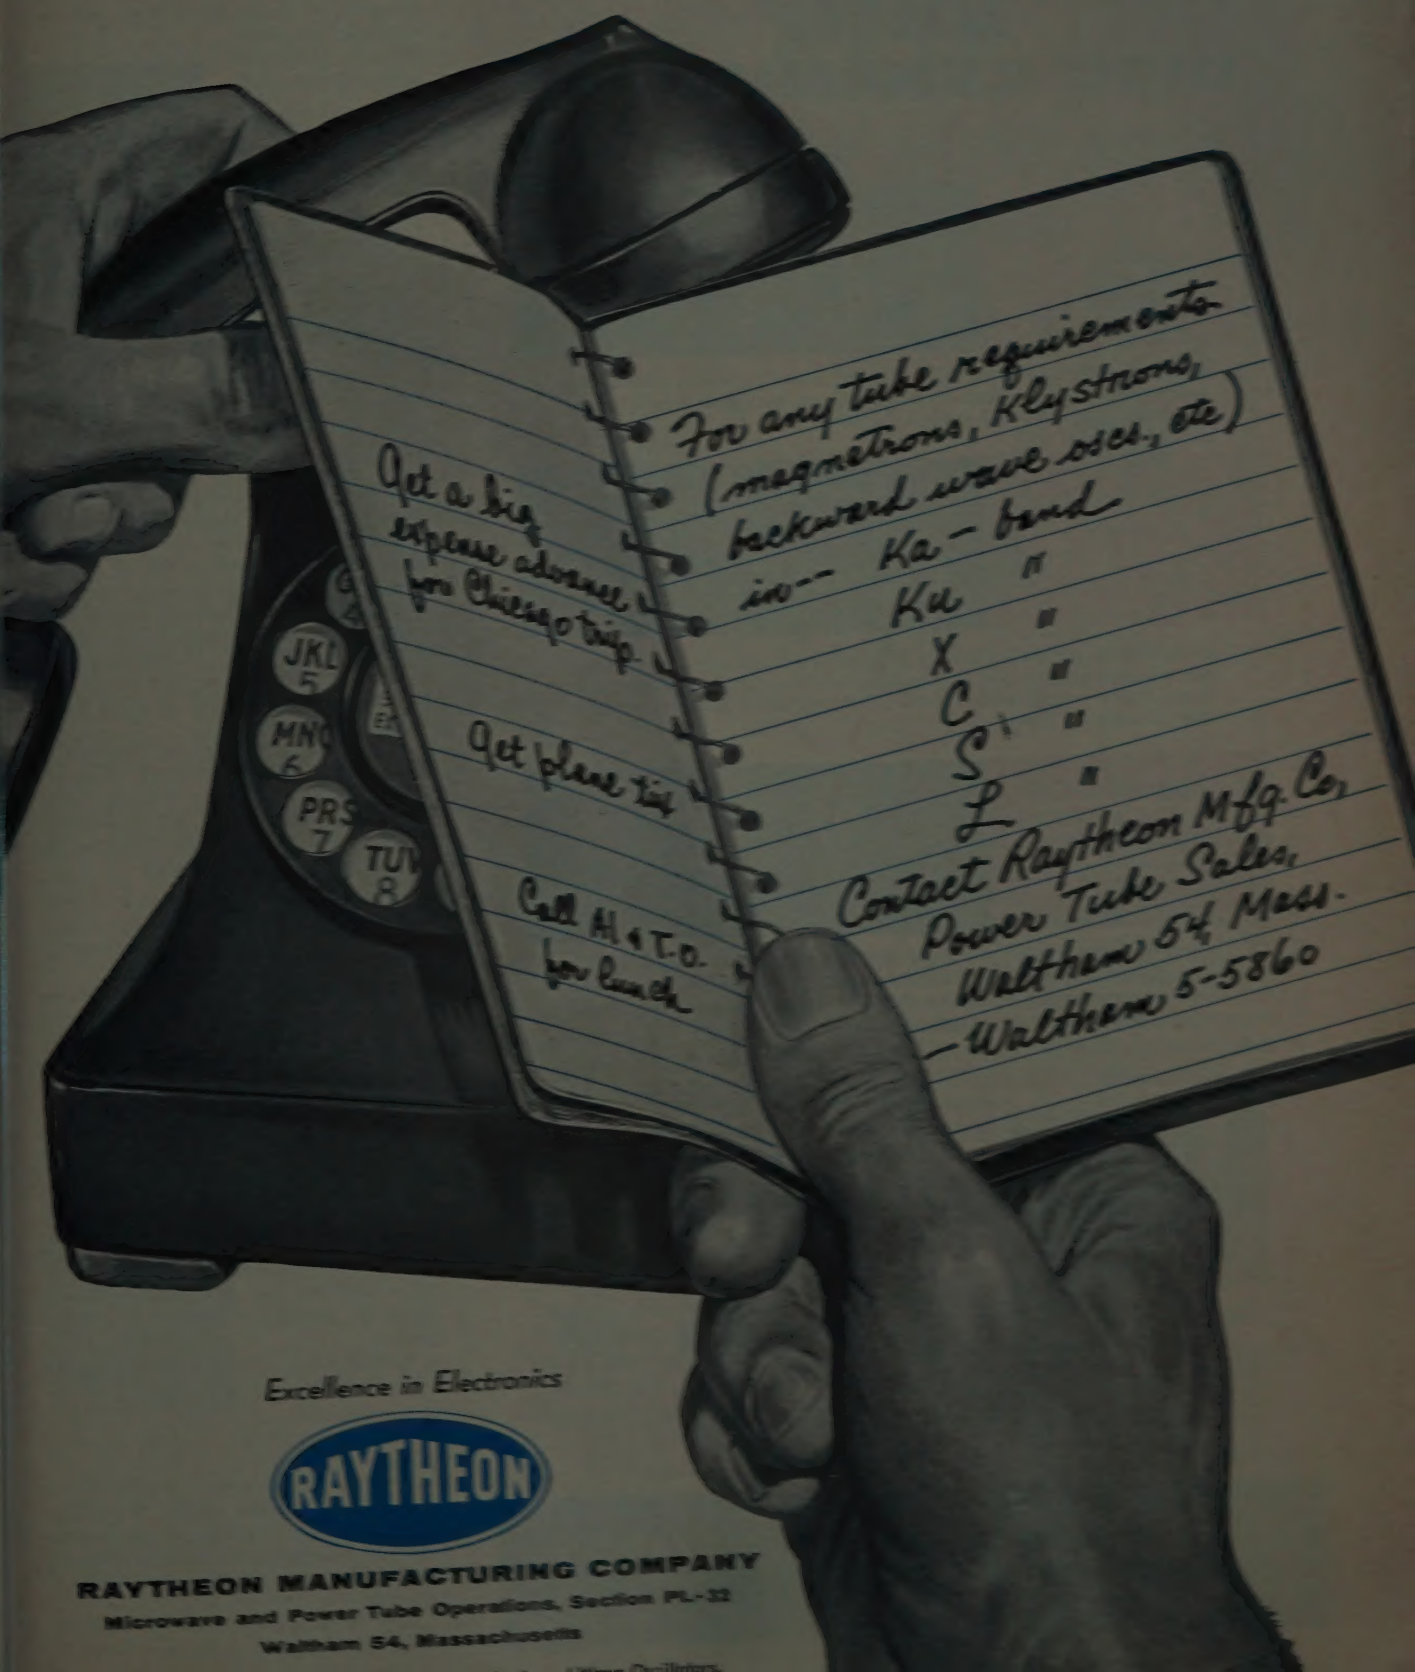 Get a big
expense advance
for Chicago trip.
Get plane tix
Call Al & T.O.
for lunch
For any tube requirements
(magnetrons, Klystrons,
backward wave oscs., etc)
in-- Ka - band
Ku "
X "
C "
S "
L "
Contact Raytheon Mfg. Co,
Power Tube Sales,
Waltham 54, Mass.
—Waltham 5-5860
JKL
5
MNO
6
PRS
7
TUV
8
Excellence in Electronics
RAYTHEON
RAYTHEON MANUFACTURING COMPANY
Microwave and Power Tube Operations, Section PL-32
Waltham 54, Massachusetts